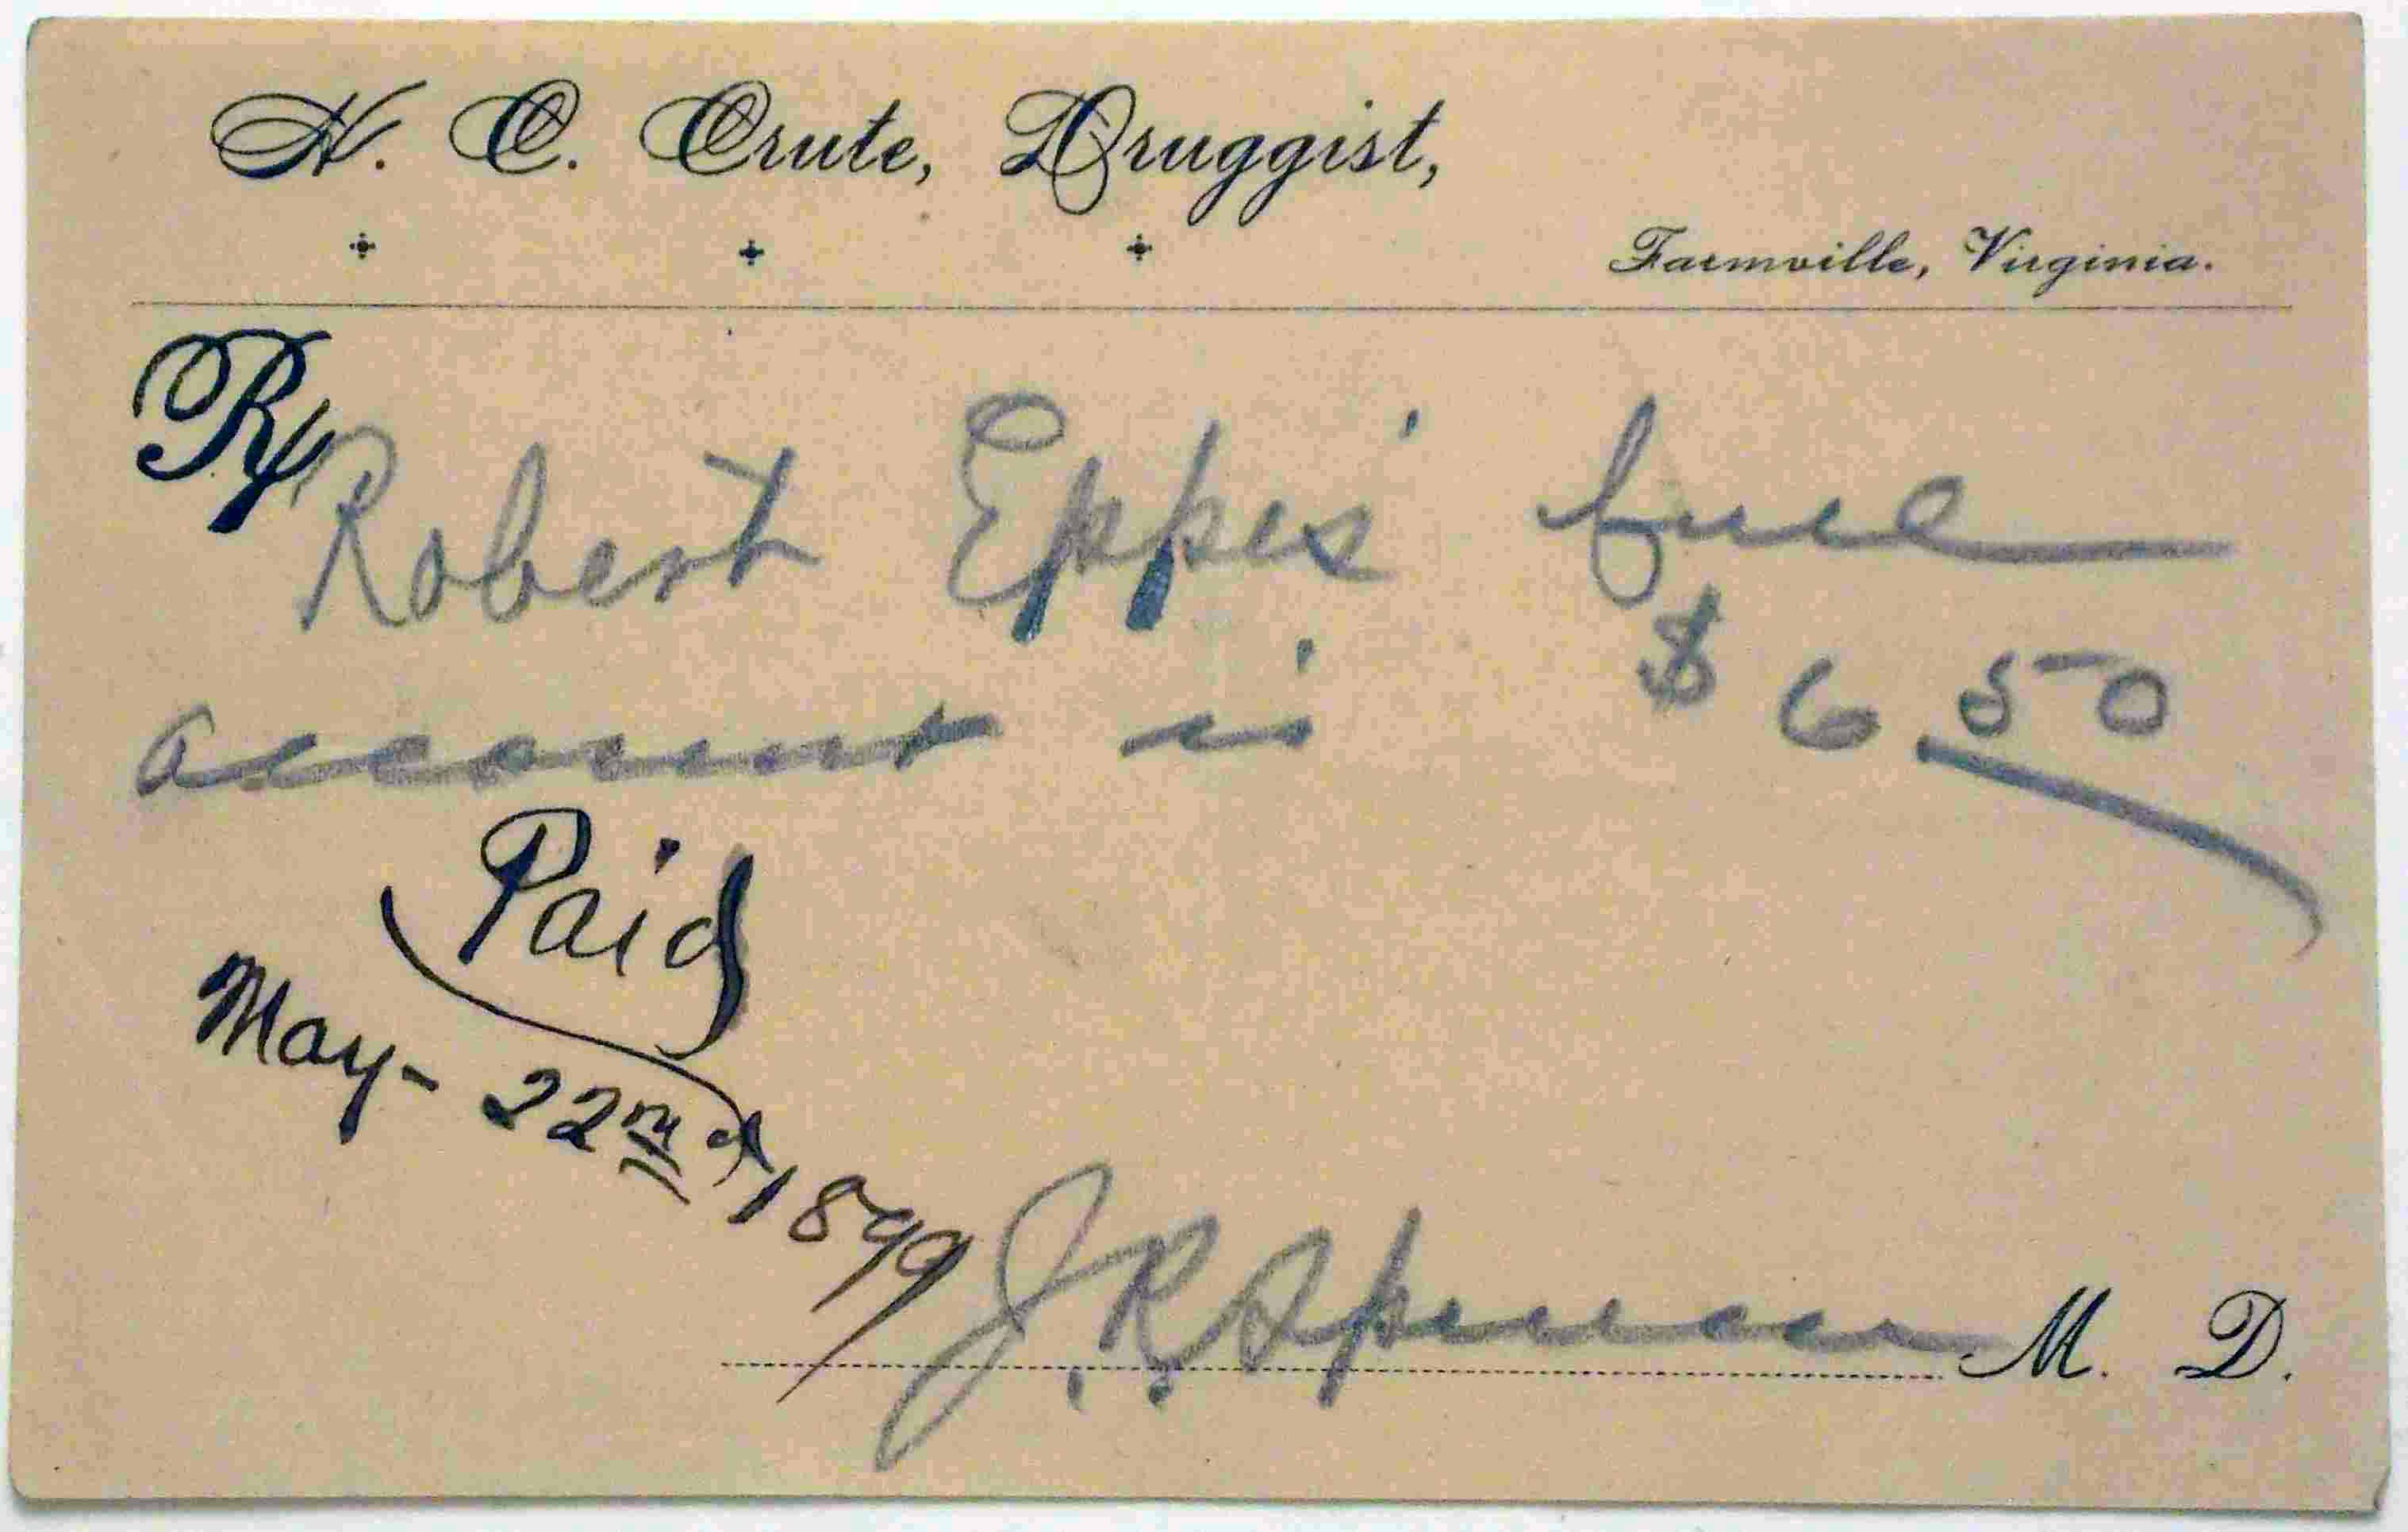 H. C. Crute, Druggist,
Farmville, Virginia.
Rx
Robert Eppes' full
account is $ 6 50
Paid
May - 22nd 1899
J. R. Spencer M. D.